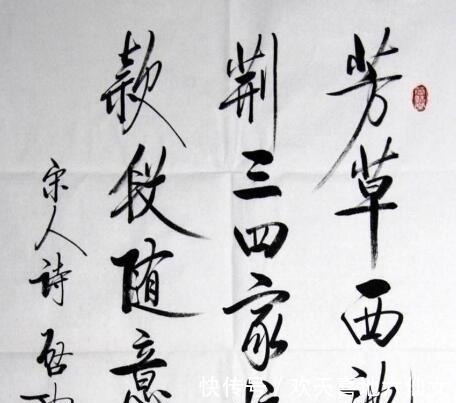 芳草西
荆三四家
款段随意
宋人詩 启
快传号/欢天